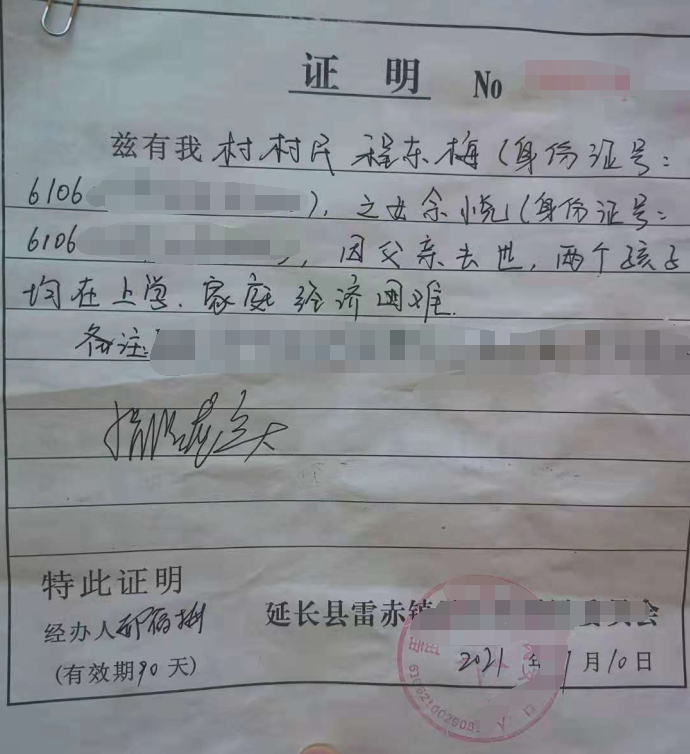 证 明 No
兹有我村村民 程东梅(身份证号:
6106 ),之女余悦(身份证号:
6106 ),因父亲去世,两个孩子
均在上学.家庭经济困难.
备注:
特此证明
经办人
延长县雷赤镇 委员会
(有效期90天)
2021年1月10日